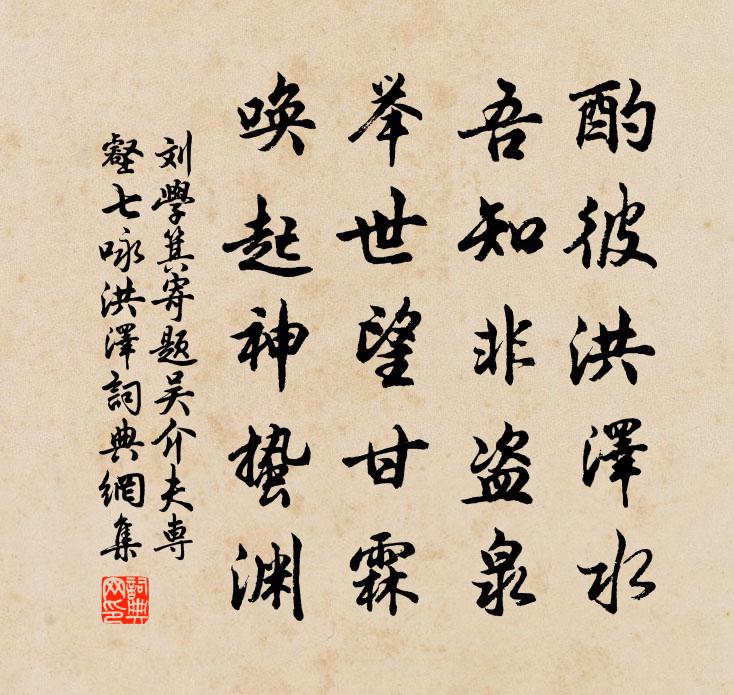 酌彼洪澤水
吾知非盗泉
举世望甘霖
唤起神蛰渊
刘學箕寄题吴介夫専
壑七咏洪澤詞典網集
詞典網印